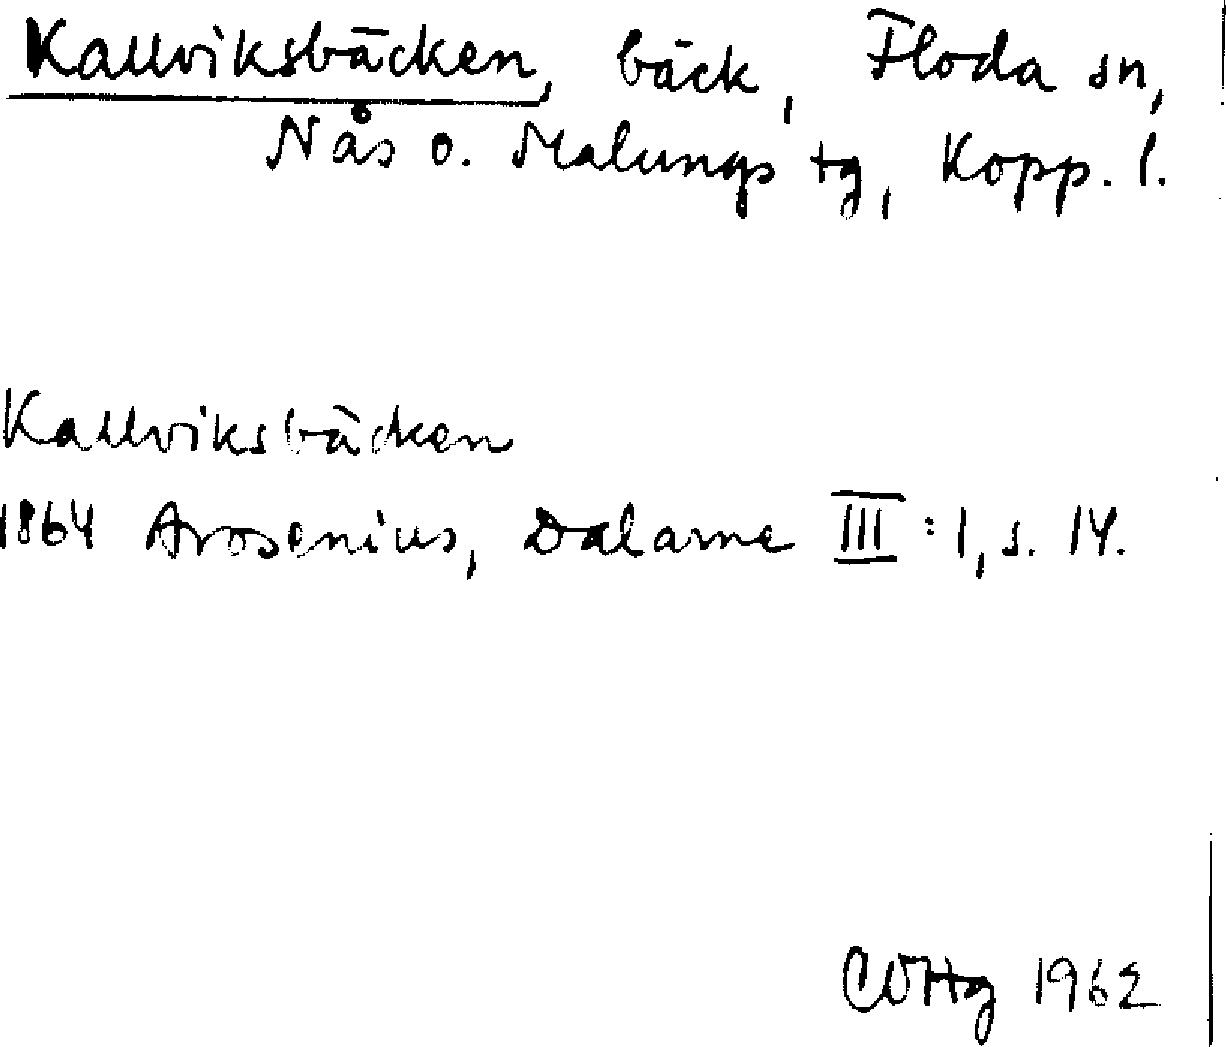 Kallviksbäcken, bäck, Floda sn,
Nås o. Malungs tg, Kopp. l.
Kallviksbäcken
1864 Arosenius, Dalarne III:1, s. 14.
1962